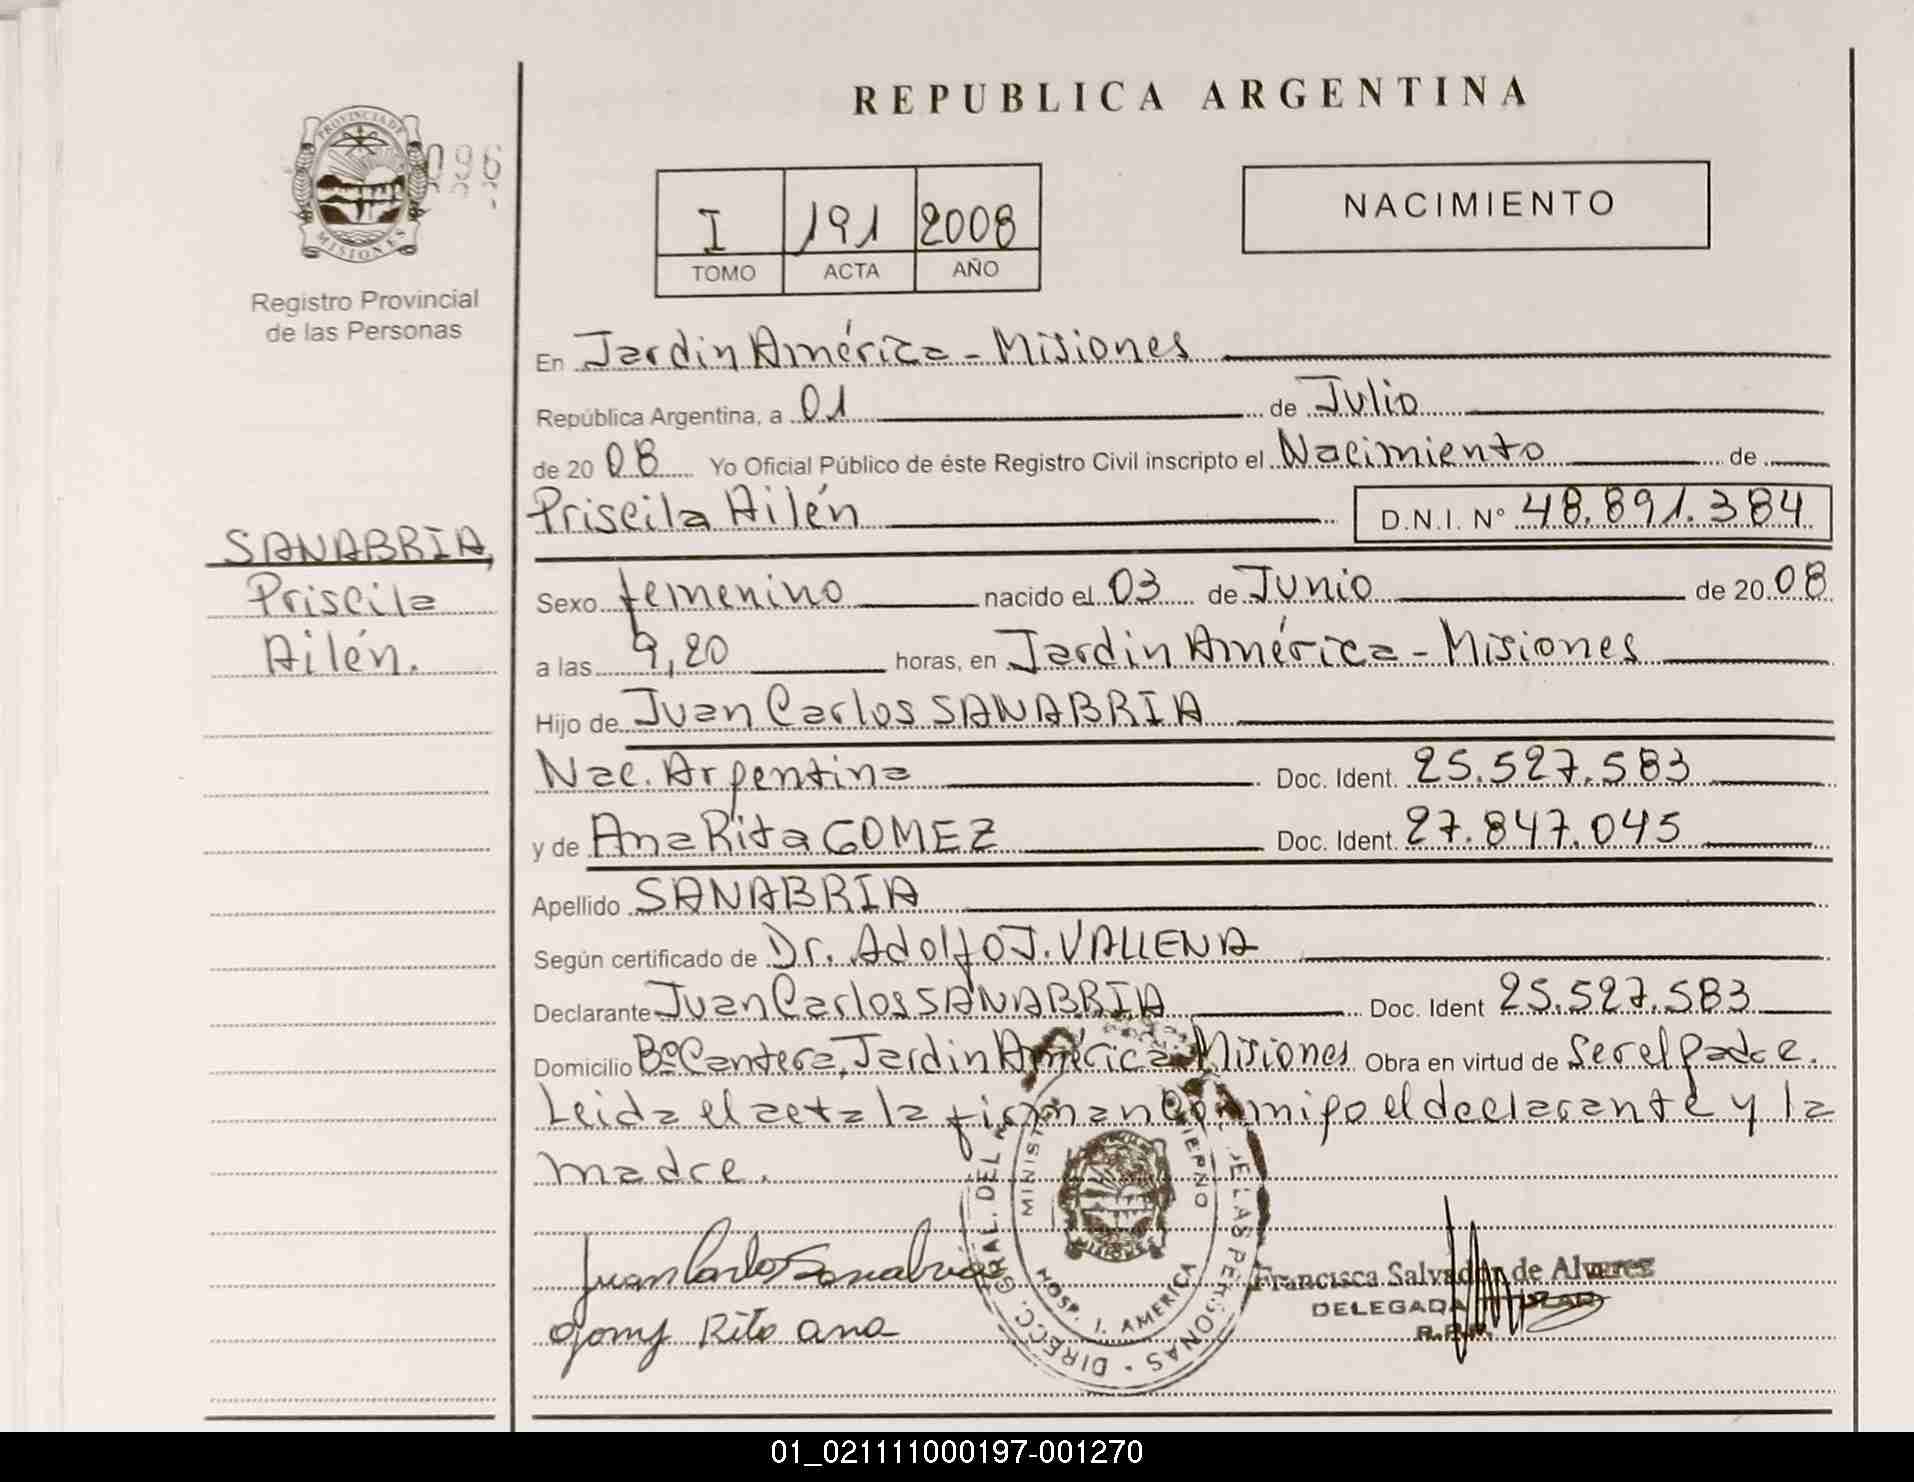 REPUBLICA ARGENTINA
PROVINCIA DE
MISIONES
096
Registro Provincial
de las Personas
I 191 2008
TOMO ACTA AÑO
NACIMIENTO
En Jardin América - Misiones
República Argentina, a 01 de Julio
de 20 08 Yo Oficial Público de éste Registro Civil inscripto el Nacimiento de
Priscila Ailén D.N.I. N° 48.891.384
SANABRIA,
Priscila
Ailén.
Sexo femenino nacido el 03 de Junio de 20 08
a las 9,20 horas, en Jardin América - Misiones
Hijo de Juan Carlos SANABRIA
Nac. Argentina Doc. Ident. 25.527.583
y de Ana Rita GOMEZ Doc. Ident. 27.847.045
Apellido SANABRIA
Según certificado de Dr. Adolfo J. VALLENA
Declarante Juan Carlos SANABRIA Doc. Ident 25.527.583
Domicilio Bº Cantera, Jardin América Misiones Obra en virtud de Ser el Padre.
Leida el acta la firman conmigo el declarante y la
madre.
Juan Carlos Sanabria
Gomez Rita Ana
DIRECC. GRAL. DEL DE LAS PERSONAS
HOSP. J. AMERICA
MISIONES
Francisca Salvador de Alvarez
DELEGADA TITULAR
R.P.P.
01_021111000197-001270